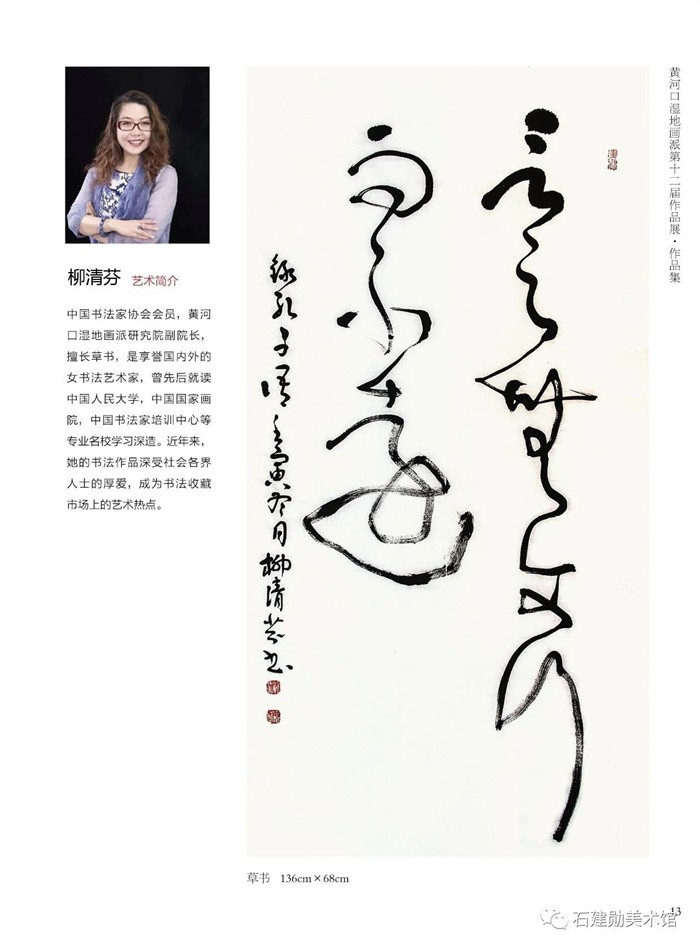 黄河口湿地画派第十二届作品展·作品集
柳清芬 艺术简介
中国书法家协会会员，黄河
口湿地画派研究院副院长，
擅长草书，是享誉国内外的
女书法艺术家，曾先后就读
中国人民大学，中国国家画
院，中国书法家培训中心等
专业名校学习深造。近年来，
她的书法作品深受社会各界
人士的厚爱，成为书法收藏
市场上的艺术热点。
言之無文行
而不遠
錄孔子语壬寅冬月柳清芬书
草书 136cm×68cm
13
石建勋美术馆